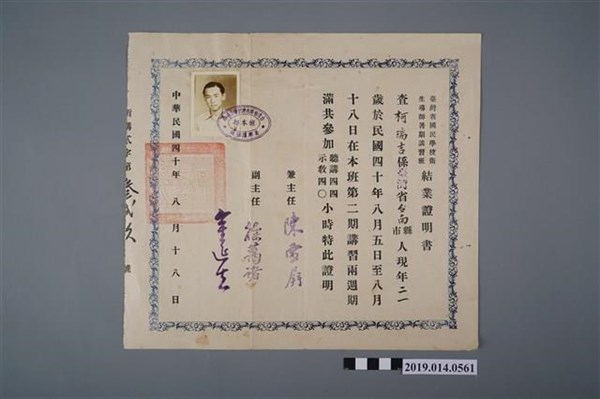 臺灣省國民學校衛
生導師暑期講習班
結業證明書
查柯瑞吉係臺灣省台南縣市人現年二一
歲於民國四十年八月五日至八月
十八日在本班第二期講習兩週期
滿共參加聽講四四示教四〇小時特此證明
兼主任
副主任
中華民國四十年八月十八日
2019.014.0561